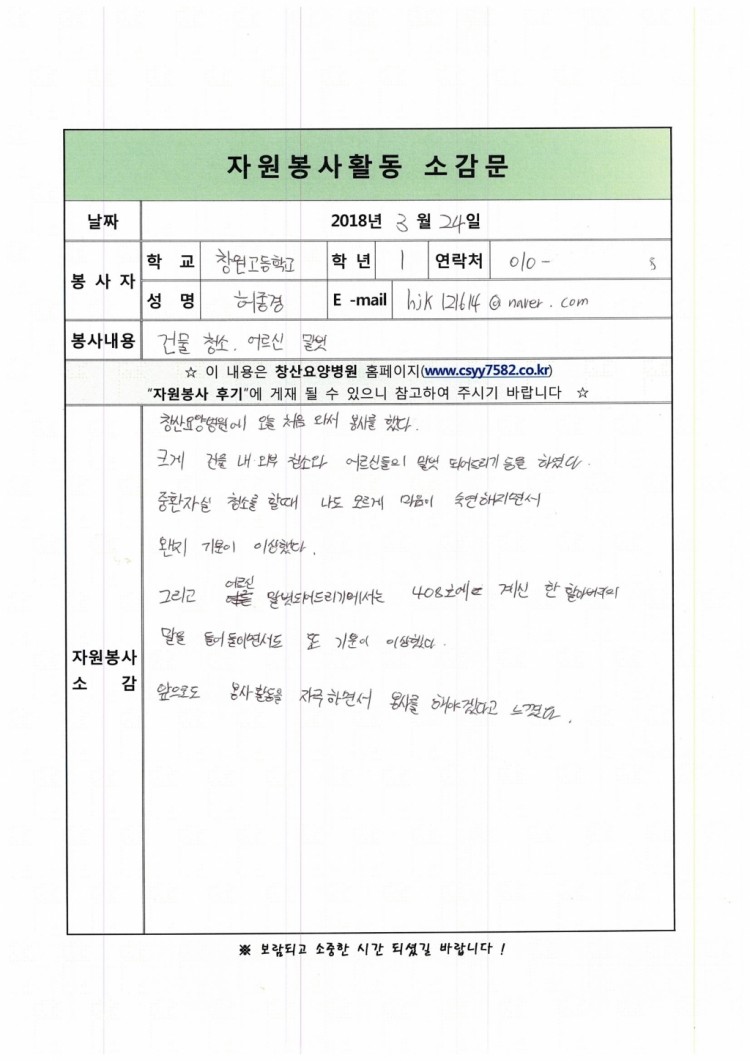 자원봉사활동 소감문
날짜 2018년 3월 24일
봉사자 학교 창원고등학교 학년 1 연락처 010- 8
성명 허종경 E-mail hjk121614@naver.com
봉사내용 건물 청소. 어르신 말벗
☆ 이 내용은 창산요양병원 홈페이지(www.csyy7582.co.kr)
"자원봉사 후기"에 게재 될 수 있으니 참고하여 주시기 바랍니다 ☆
자원봉사 소감
창산요양병원에 오늘 처음 와서 봉사를 했다.
크게 건물 내 외부 청소와 어르신들의 말벗 되어드리기 등을 하였다.
중환자실 청소를 할때 나도 모르게 마음이 숙연해지면서
왠지 기분이 이상했다.
그리고 어르신 말벗되어드리기에서는 408호에 계신 한 할아버지의
말을 들어 드리면서도 또 기분이 이상했다.
앞으로도 봉사활동을 자극하면서 봉사를 해야겠다고 느꼈다.
※ 보람되고 소중한 시간 되셨길 바랍니다 !